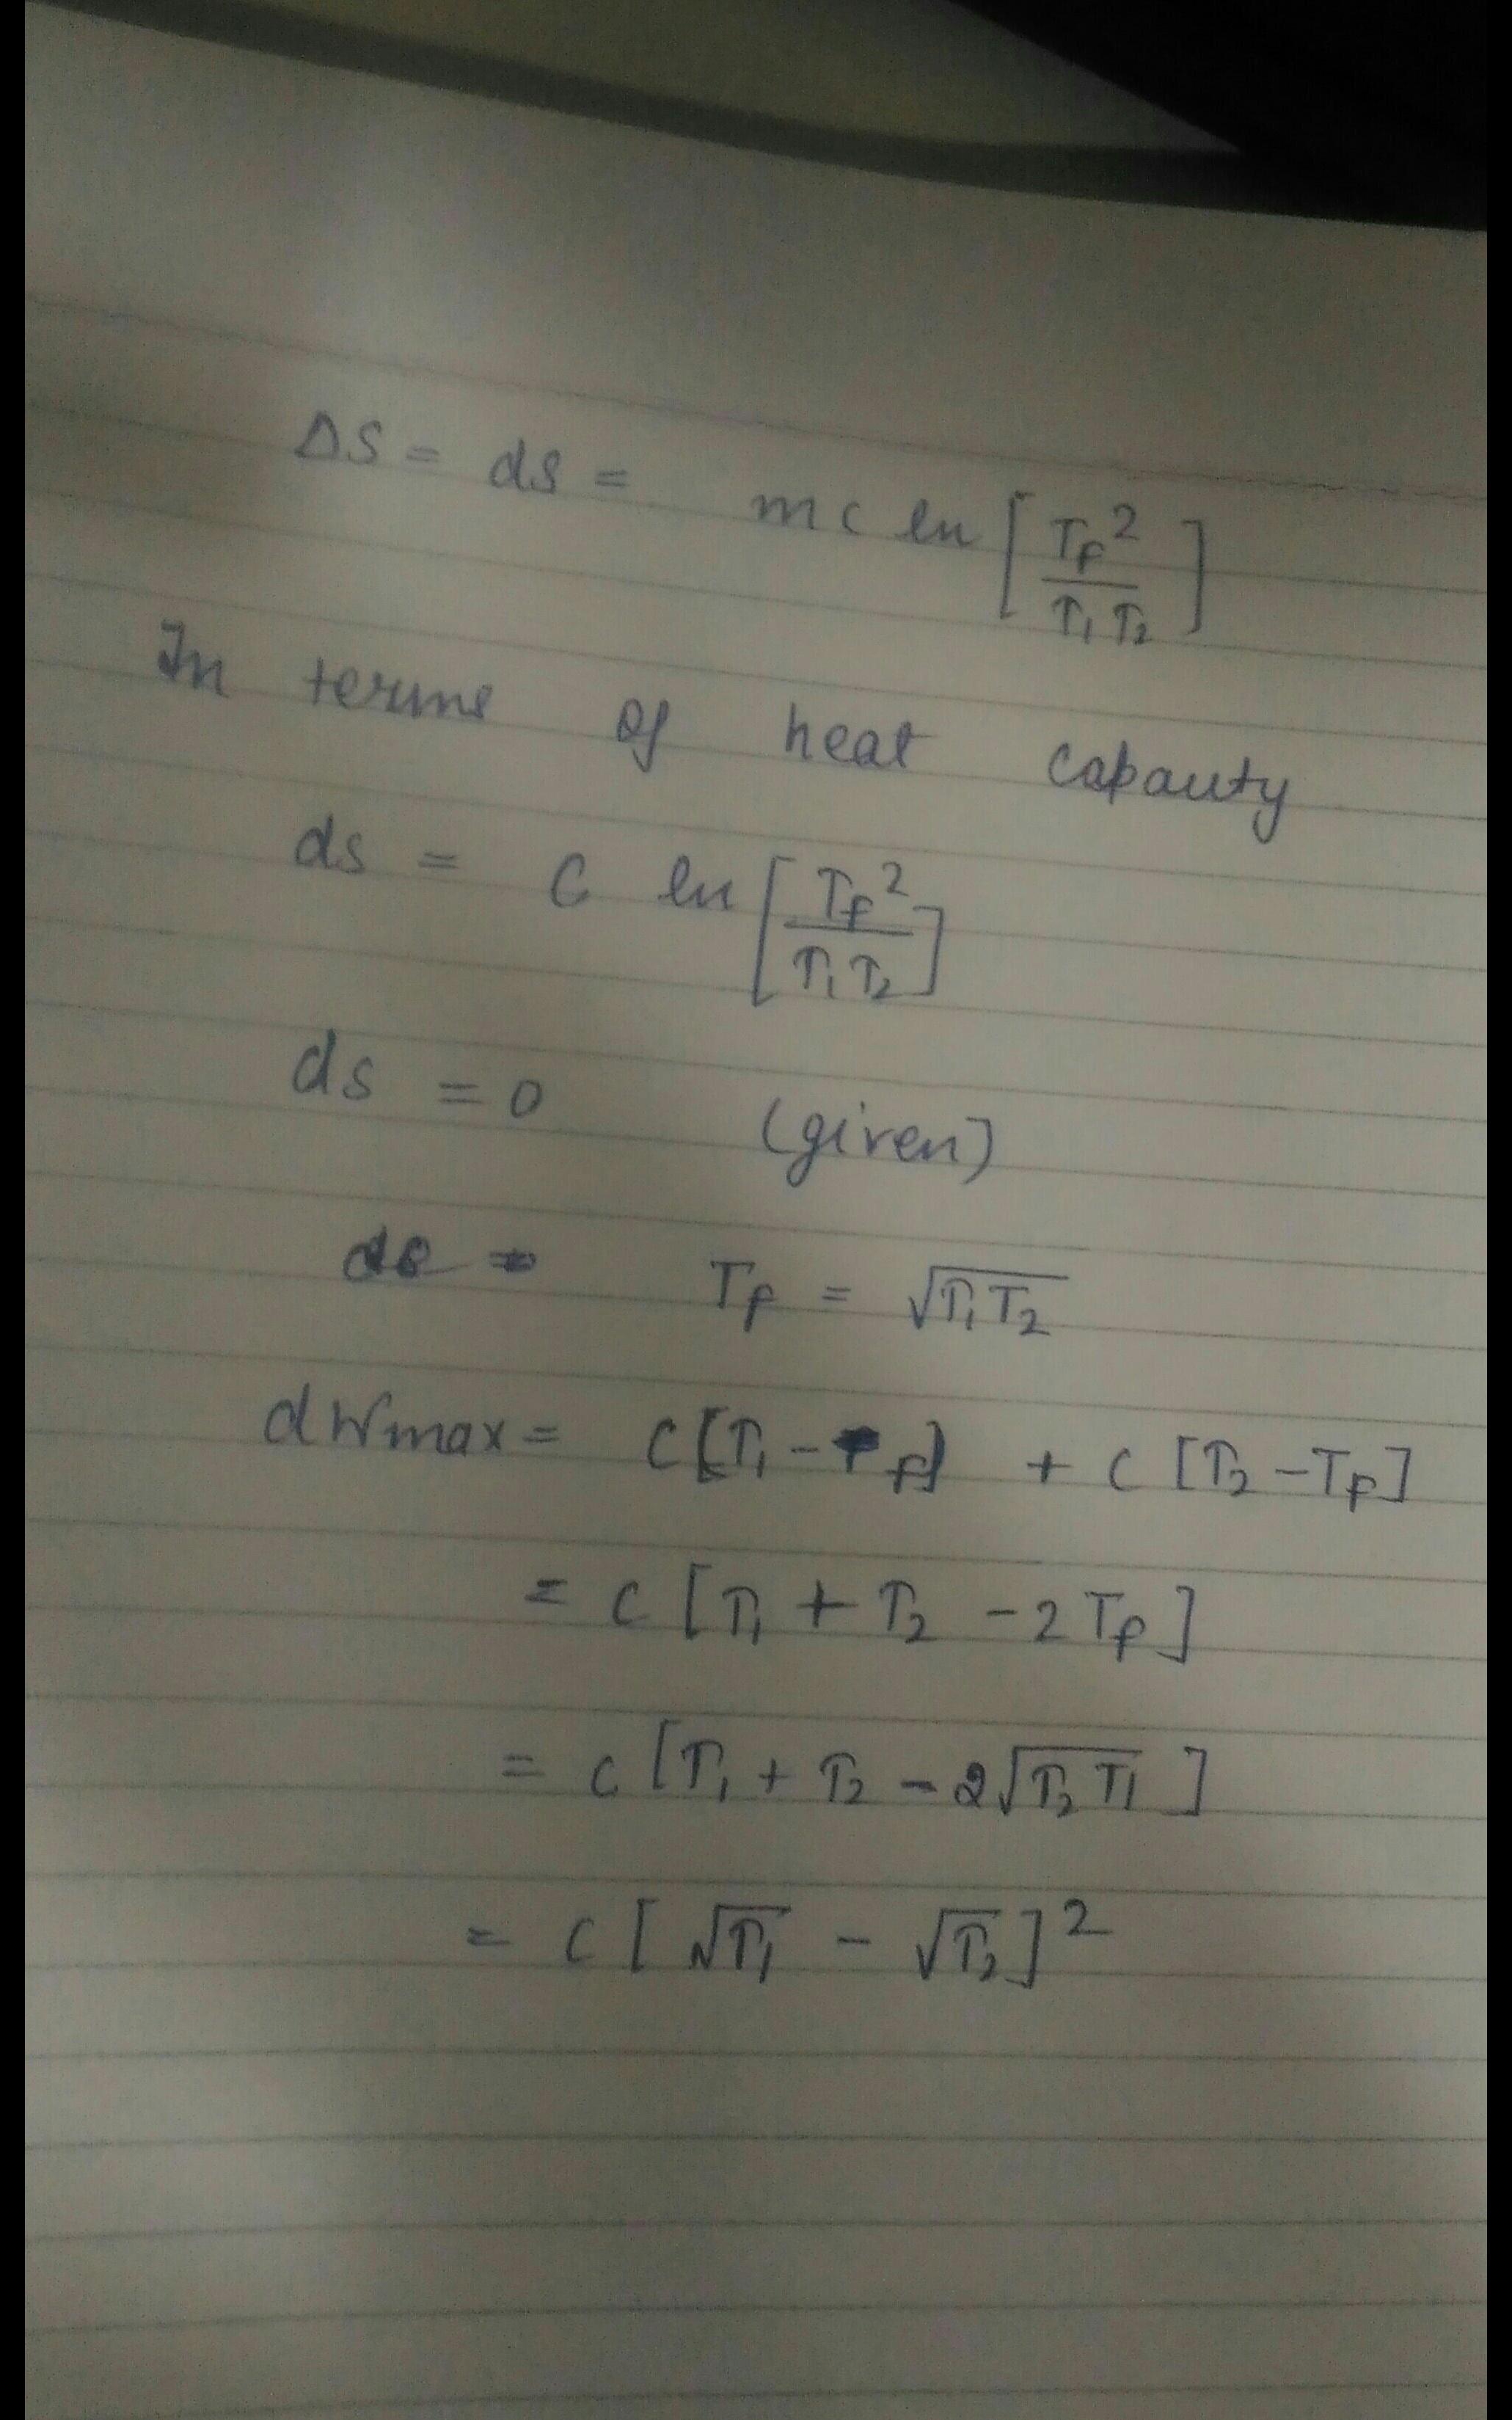 ΔS = dS = mc ln [Tf² / T₁T₂]
In terms of heat capacity
ds = C ln [Tf² / T₁T₂]
ds = 0 (given)
Tf = √T₁T₂
dWmax = C[T₁ - Tf] + C[T₂ - Tf]
= C[T₁ + T₂ - 2Tf]
= C[T₁ + T₂ - 2√T₂T₁]
= C[√T₁ - √T₂]²